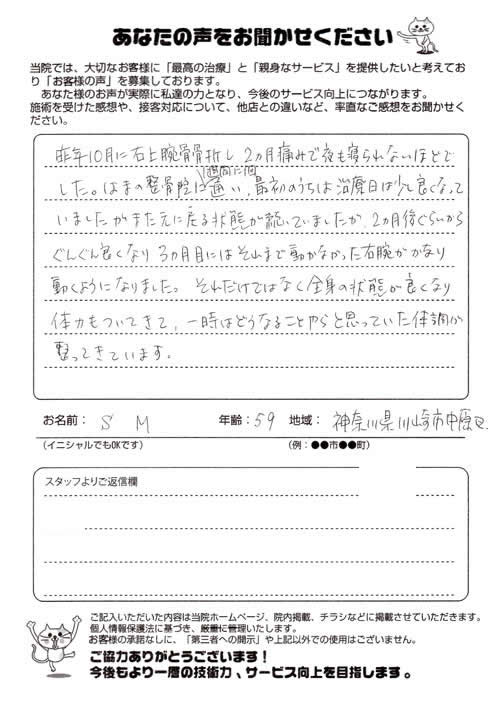 あなたの声をお聞かせください
当院では、大切なお客様に「最高の治療」と「親身なサービス」を提供したいと考えてお
り「お客様の声」を募集しております。
あなた様のお声が実際に私達の力となり、今後のサービス向上につながります。
施術を受けた感想や、接客対応について、他店との違いなど、率直なご感想をお聞かせく
ださい。
昨年10月に右上腕骨骨折し2カ月痛みで夜も寝られないほどで
した。はまの整骨院に週間に 通い、最初のうちは治療日は少し良くなって
いましたがまた元に戻る状態が続いていましたが、2カ月後ぐらいから
ぐんぐん良くなり3カ月目にはそれまで動かなかった右腕がかなり
動くようになりました。それだけではなく全身の状態が良くなり
体力もついてきて、一時はどうなることやらと思っていた体調が
整ってきています。
お名前: S M 年齢:59 地域: 神奈川県川崎市中原区
(イニシャルでもOKです) (例:●●市●●町)
スタッフよりご返信欄
ご記入いただいた内容は当院ホームページ、院内掲載、チラシなどに掲載させていただきます。
個人情報保護法に基づき、厳重に管理いたします。
お客様の承諾なしに、「第三者への開示」や上記以外での使用はございません。
ご協力ありがとうございます!
今後もより一層の技術力、サービス向上を目指します。